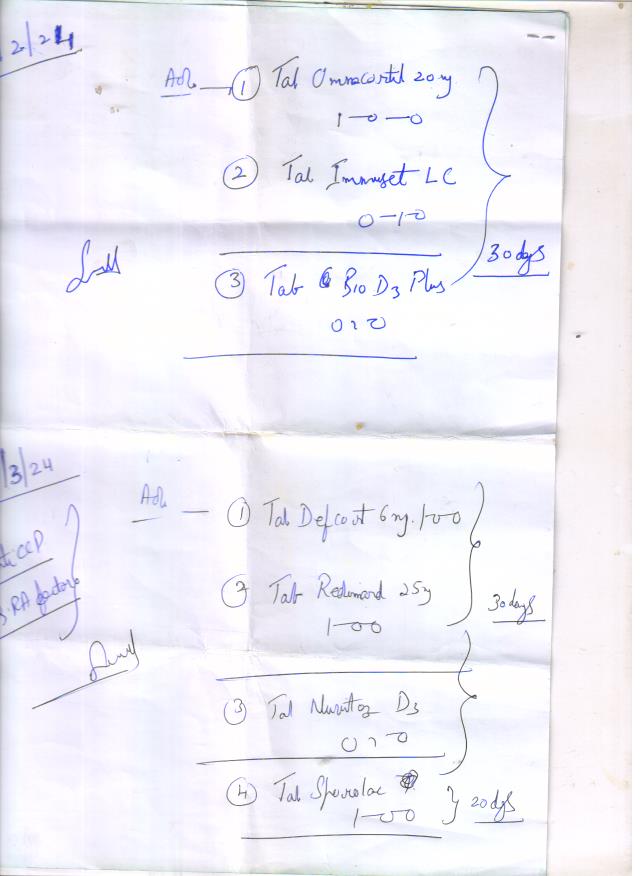 2/24
Adv — ① Tab Omnacortil 20mg
1-0-0
② Tab Immuset LC
0-1-0
30 days
③ Tab Bio D3 Plus
0 1 0
/3/24
Adv — ① Tab Defcort 6mg. 1-0-0
CCP
② Tab 25mg
RA factor
30 days
1-0-0
③ Tab D3
0 1 0
④ Tab Sporolac
1-0-0 } 20 dys